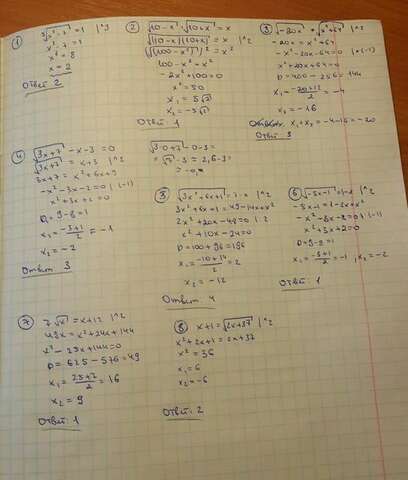 ① ∛x³-7 = 1 |^3
x³-7=1
x³=8
x=2
Ответ 2
② √10-x² · √10+x² = x
√(10-x)(10+x) = x |^2
100-x²=x²
-2x²+100=0
x²=50
x₁=5√2
x₂=-5√2
Ответ 1
③ √-20x = √x²+64 |^2
-20x = x²+64
-x²-20x-64=0 |·(-1)
x²+20x+64=0
D=400-256=144
x₁= -20+12/2 = -4
x₂=-16
x₁+x₂=-4-16=-20
Ответ 3
④ √3x+7 -x-3=0
√3x+7 = x+3 |^2
3x+7=x²+6x+9
-x²-3x-2=0 |(-1)
x²+3x+2=0
D=9-8=1
x₁= -3+1/2 = -1
x₂=-2
Ответ 3
√3·0+7 -0-3=
=√7-3 = 2,6-3=
⑤ 3x²+6x+1=49-14x+x²
2x²+20x-48=0 |:2
x²+10x-24=0
D=100+96=196
x₁= -10+14/2 = 2
x₂=-12
Ответ. 4
⑥
-x²-3x-2=0 |·(-1)
x²+3x+2=0
D=9-8=1
x₁= -3+1/2 = -1, x₂=-2
Ответ: 1
⑦ 7√x = x+12 |^2
49x=x²+24x+144
x²-25x+144=0
D=625-576=49
x₁= 25+7/2 = 16
x₂=9
Ответ: 1
⑧ x+1=√2x+37 |^2
x²+2x+1=2x+37
x²=36
x₁=6
x₂=-6
Ответ: 2